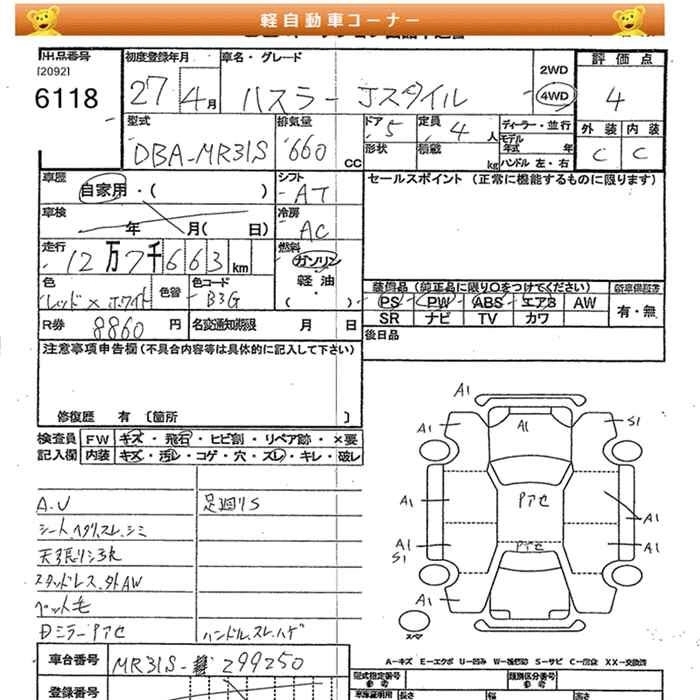 軽自動車コーナー
出品番号
[2092]
6118
初度登録年月
27 4月
車名・グレード
ハスラー Jスタイル
2WD
4WD
評価点
4
外装 内装
C C
型式
DBA-MR31S
排気量
660 CC
ドア 5
定員 4 人
形状
積載 kg
ディーラー・並行
モデル年式 年
ハンドル 左・右
車歴
自家用・( )
シフト
AT
車検
年 月( 日)
冷房
AC
走行
12万7千663km
燃料
ガソリン
軽油
( )
色
レッド×ホワイト
色替
色コード
B3G
R券 8860 円
名変通知期限 月 日
セールスポイント (正常に機能するものに限ります)
装備品 (純正品に限り〇をつけてください)
PS PW ABS エアB AW
SR ナビ TV カワ
新車保証書
有・無
後日品
注意事項申告欄(不具合内容等は具体的に記入して下さい)
修復歴 有 〔箇所 〕
検査員記入欄
FW キズ・飛石・ヒビ割・リペア跡・×要
内装 キズ・汚レ・コゲ・穴・スレ・キレ・破レ
A.U
足廻りS
シート、ヘタリ、スレ、シミ
天張リシミ
スタッドレス、外AW
ペット毛
Dミラー Pアセ
ハンドル、スレ、ハゲ
A1
A1
A1
S1
A1
Pアセ
A1
A1
S1
Pアセ
A1
A1
スペア
A-キズ E-エクボ U-凹ミ S-サビ XX-交換済
車台番号
MR31S-299250
登録番号
型式指定番号
類別区分番号
長さ
幅
高さ